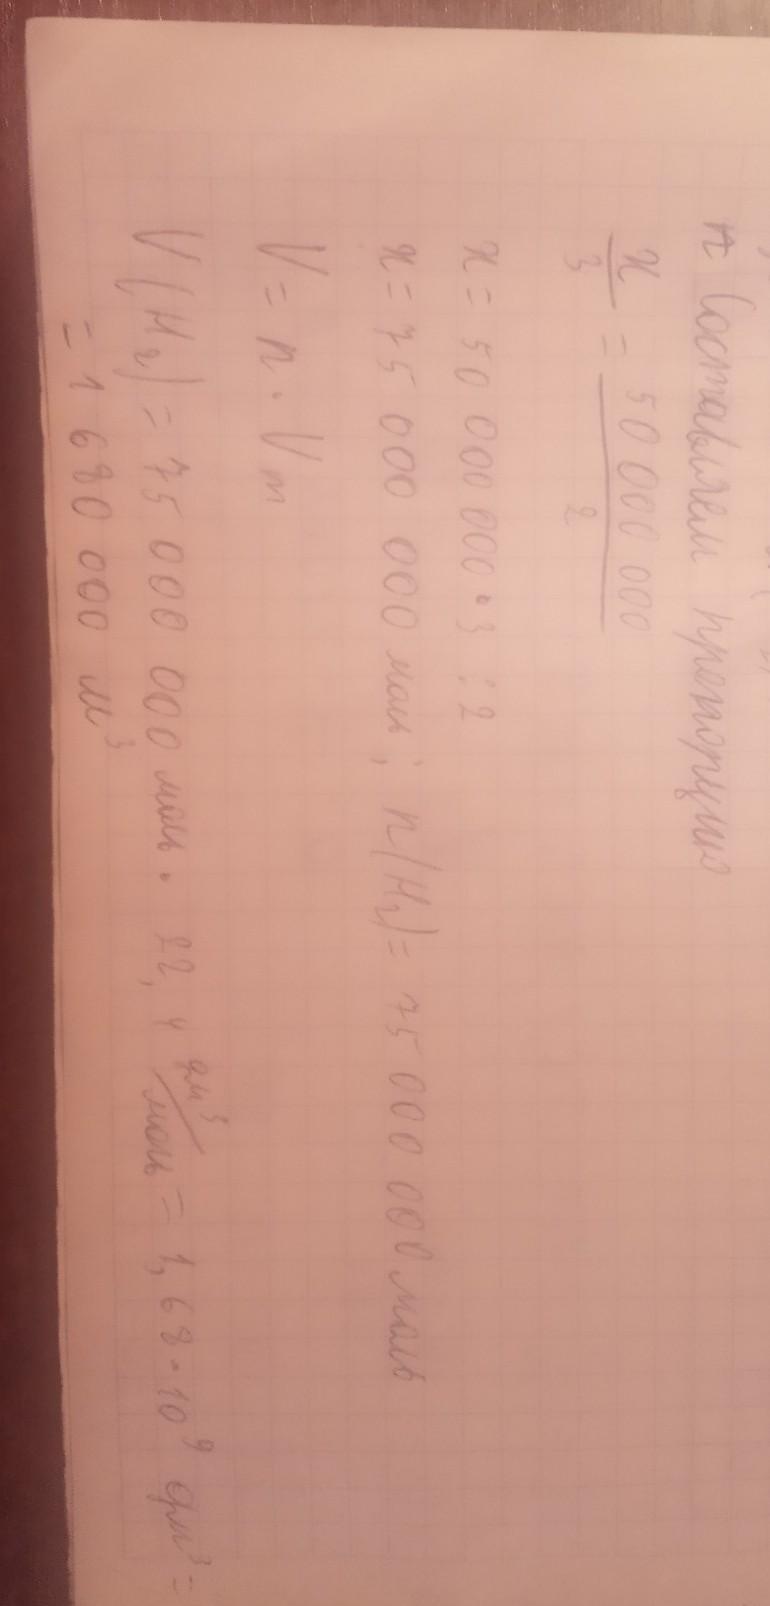 Составляем пропорцию
x/3 = 50 000 000/2
x = 50 000 000 · 3 : 2
x = 75 000 000 моль; n(H₂) = 75 000 000 моль
V = n · Vm
V(H₂) = 75 000 000 моль · 22,4 дм³/моль = 1,68 · 10⁹ дм³ =
= 1 680 000 м³